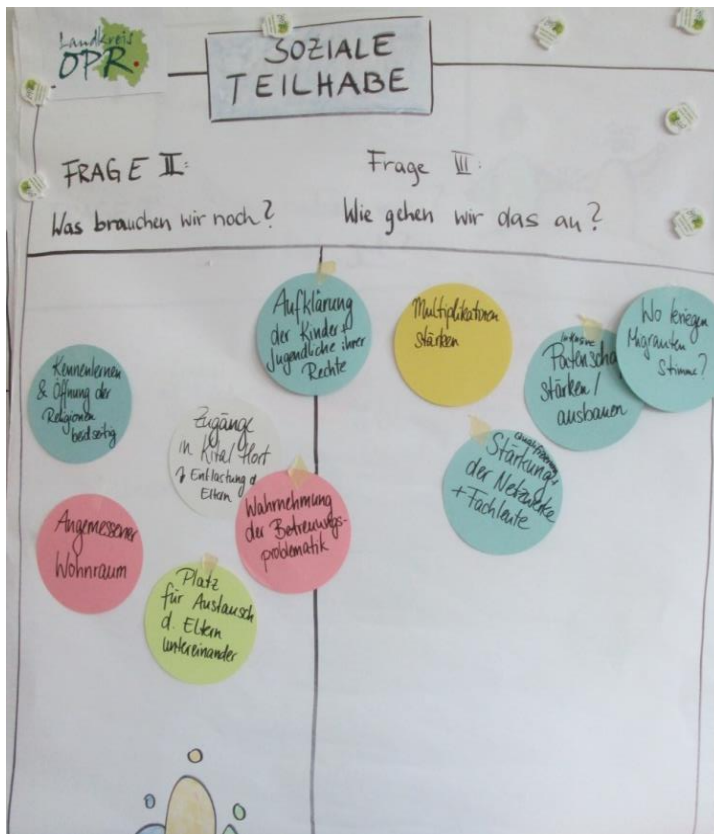 Landkreis
OPR
SOZIALE
TEILHABE
FRAGE II:
Was brauchen wir noch?
Frage III:
Wie gehen wir das an?
Kennenlernen
& Öffnung der
Religionen
beidseitig
Angemessener
Wohnraum
Zugänge
in Kita/Hort
Entlastung d
Eltern
Platz
für Austausch
d. Eltern
untereinander
Aufklärung
der Kinder +
Jugendliche ihrer
Rechte
Wahrnehmung
der Betreuungs-
problematik
Multiplikatoren
stärken
Qualifizierung +
Stärkung
der Netzwerke
+ Fachleute
inklusive
Patenscha
stärken/
ausbauen
Wo kriegen
Migranten
Stimme?